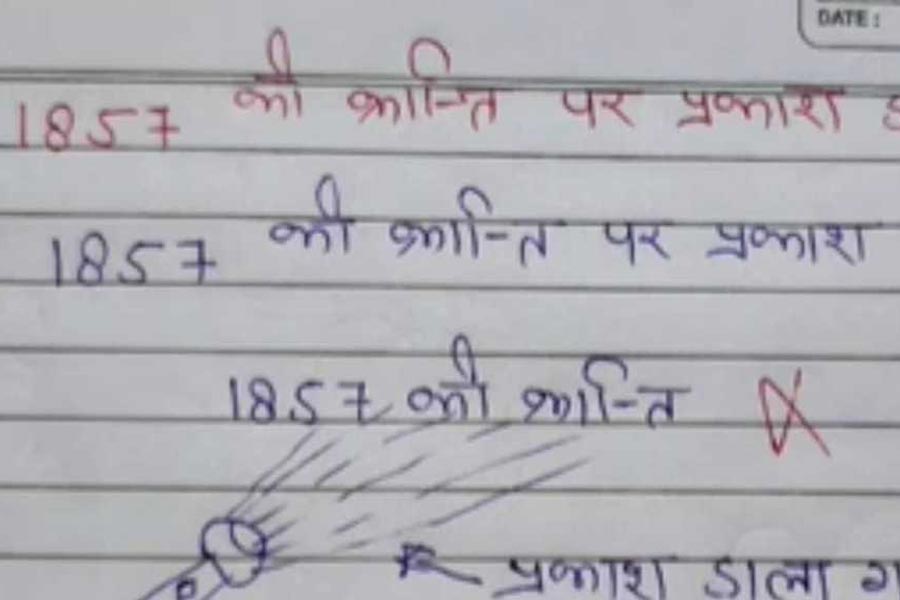 DATE :
1857 की क्रान्ति पर प्रकाश
1857 की क्रान्ति पर प्रकाश
1857 की क्रान्ति
प्रकाश डाला